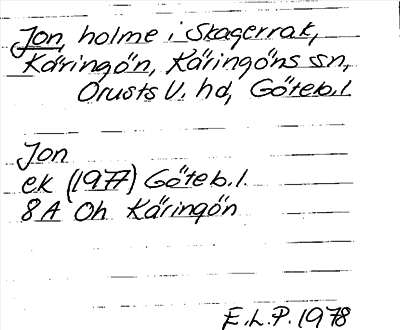 Jon, holme i Skagerrak,
Käringön, Käringöns sn,
Orusts V. hd, Göteb.l.
Jon
ek (1977) Göteb.l.
8A Oh Käringön
E.L.P. 1978